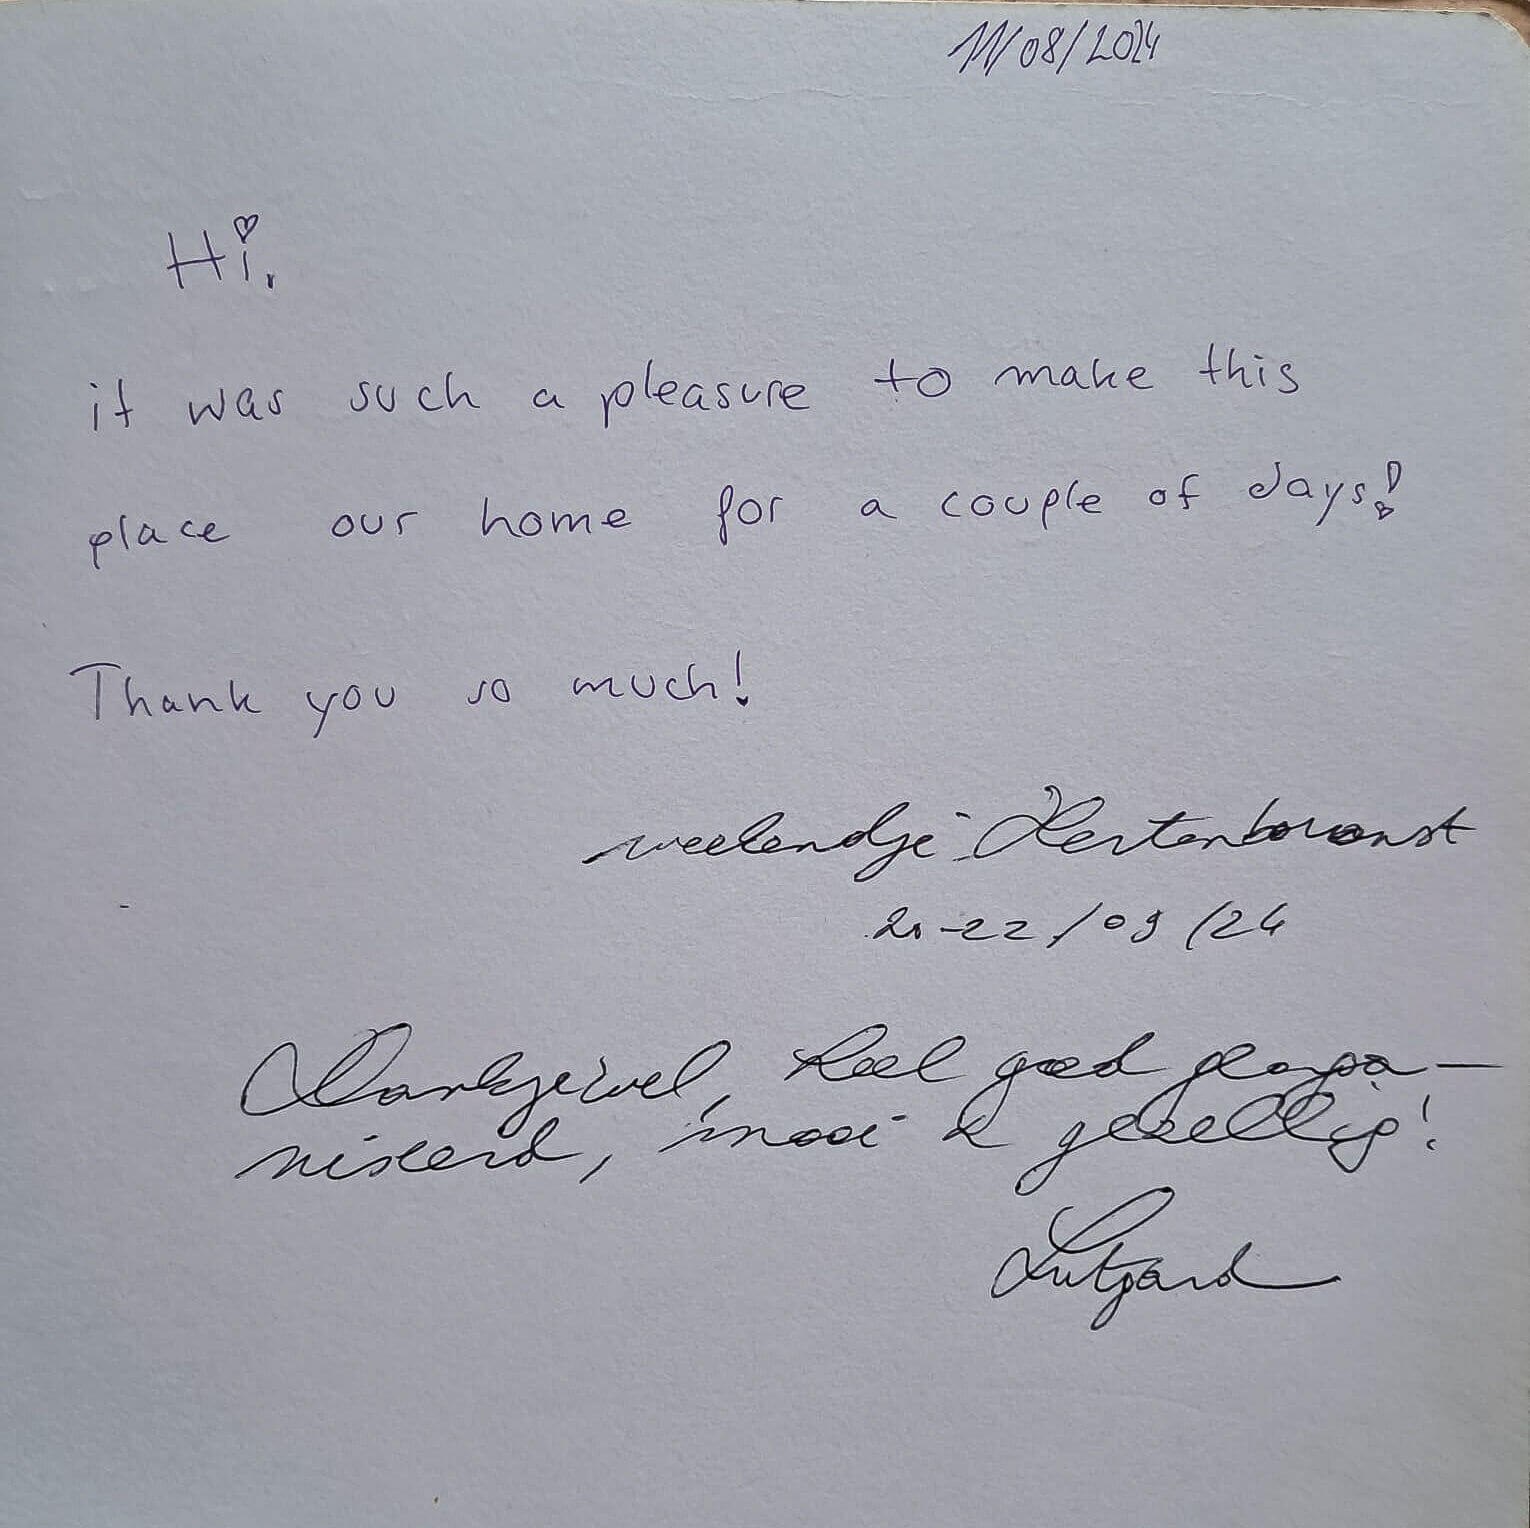 11/08/2024
Hi,
it was such a pleasure to make this
place our home for a couple of days!
Thank you so much!
weekendje Hertenbronst
20-22/09/24
Dankjewel, heel goed georga-
niseerd, mooi & gezellig!
Lutgard